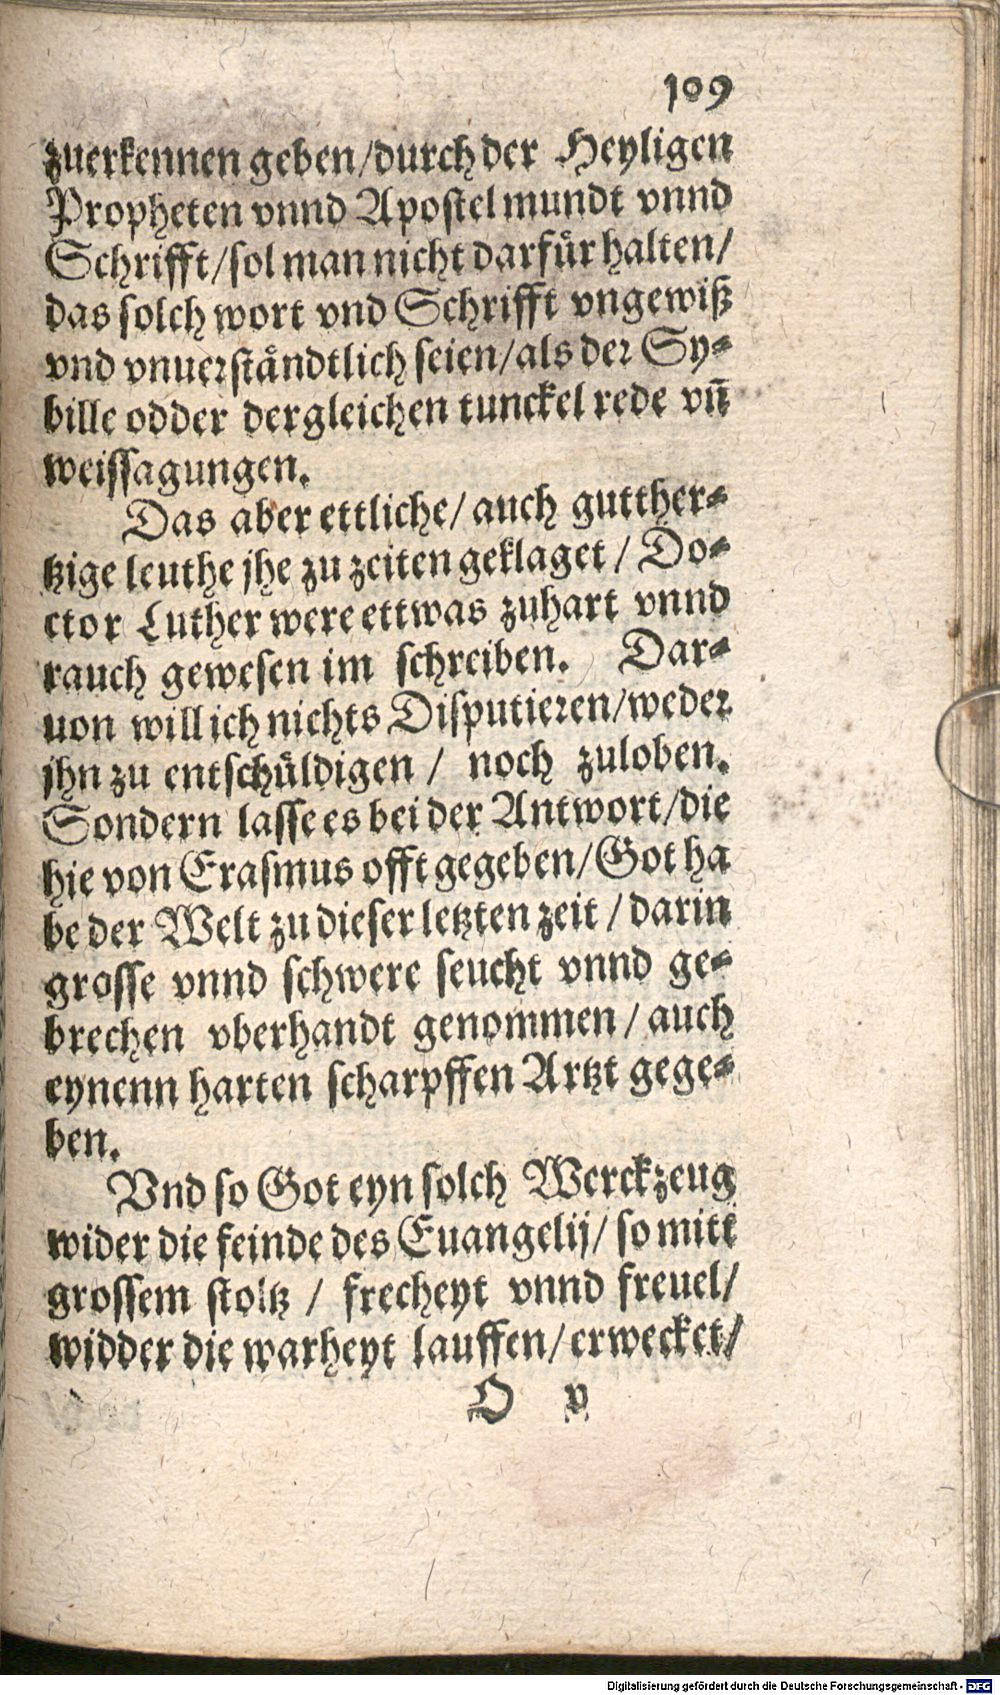 109
zuerkennen geben/durch der Heyligen
Propheten vnnd Apostel mundt vnnd
Schrifft/sol man nicht darfür halten/
das solch wort vnd Schrifft vngewiß
vnd vnuerständtlich seien/als der Sy-
bille odder dergleichen tunckel rede vñ
weissagungen.
Das aber ettliche/auch gutther-
tzige leuthe jhe zu zeiten geklaget/Do-
ctor Luther were ettwas zuhart vnnd
rauch gewesen im schreiben. Dar-
uon will ich nichts Disputieren/weder
jhn zu entschüldigen/ noch zuloben.
Sondern lasse es bei der Antwort/die
hie von Erasmus offt gegeben/Got ha
be der Welt zu dieser letzten zeit/darin
grosse vnnd schwere seucht vnnd ge-
brechen vberhandt genommen/auch
eynenn harten scharpffen Artzt gege-
ben.
Vnd so Got eyn solch Werckzeug
wider die feinde des Euangelij/so mitt
grossem stoltz / frecheyt vnnd freuel/
widder die warheyt lauffen/erwecket/
O v
Digitalisierung gefördert durch die Deutsche Forschungsgemeinschaft - DFG